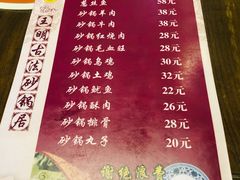 王明古法砂锅居
葱丝鱼 58元
砂锅羊肉 38元
砂锅羊肉 38元
砂锅红烧肉 28元
砂锅毛血旺 28元
砂锅乌鸡 30元
砂锅土鸡 32元
砂锅鱿鱼 22元
砂锅酥肉 26元
砂锅排骨 28元
砂锅丸子 20元
谢绝浪费